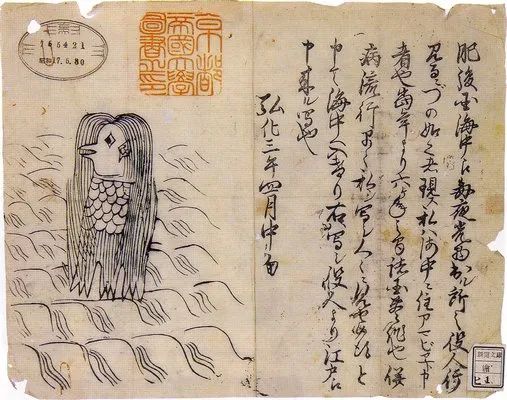 肥後国海中え毎夜光物出ル所之役人行
見るニづの如く者現ス私ハ海中ニ住アマビヱト申
者也當年より六ヶ年之間諸国豊作也併
病流行早々私シ写シ人々ニ見せ候得と
申て海中へ入けり右写シ役人より江戸え
申来ル写也
弘化三年四月中旬
京都
帝國大學
圖書之印
165421
昭和17.5.30
新聞文庫